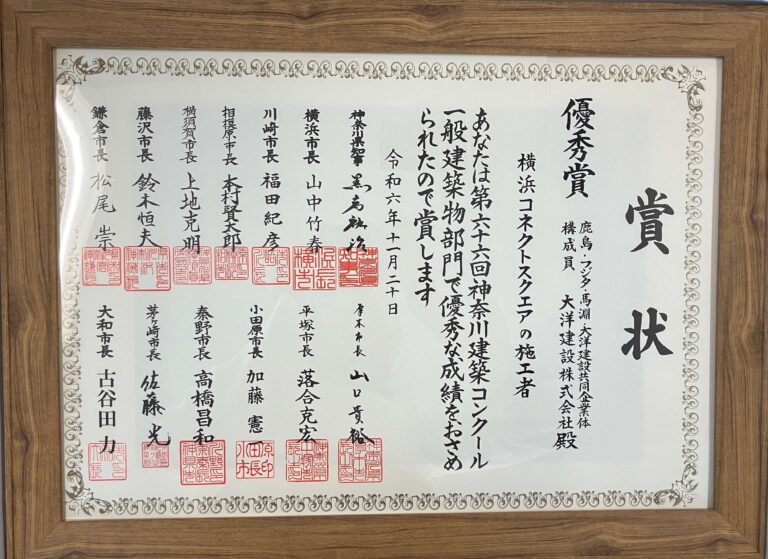 賞状
優秀賞
鹿島・フジタ・馬淵・大洋建設共同企業体
構成員 大洋建設株式会社 殿
横浜コネクトスクエアの施工者
あなたは第六十六回神奈川建築コンクール
一般建築物部門で優秀な成績をおさめ
られたので賞します
令和六年十一月二十日
神奈川県知事 黒岩祐治
横浜市長 山中竹春
川崎市長 福田紀彦
相模原市長 本村賢太郎
横須賀市長 上地克明
藤沢市長 鈴木恒夫
鎌倉市長 松尾崇
厚木市長 山口貴裕
平塚市長 落合克宏
小田原市長 加藤憲一
秦野市長 高橋昌和
茅ヶ崎市長 佐藤光
大和市長 古谷田力